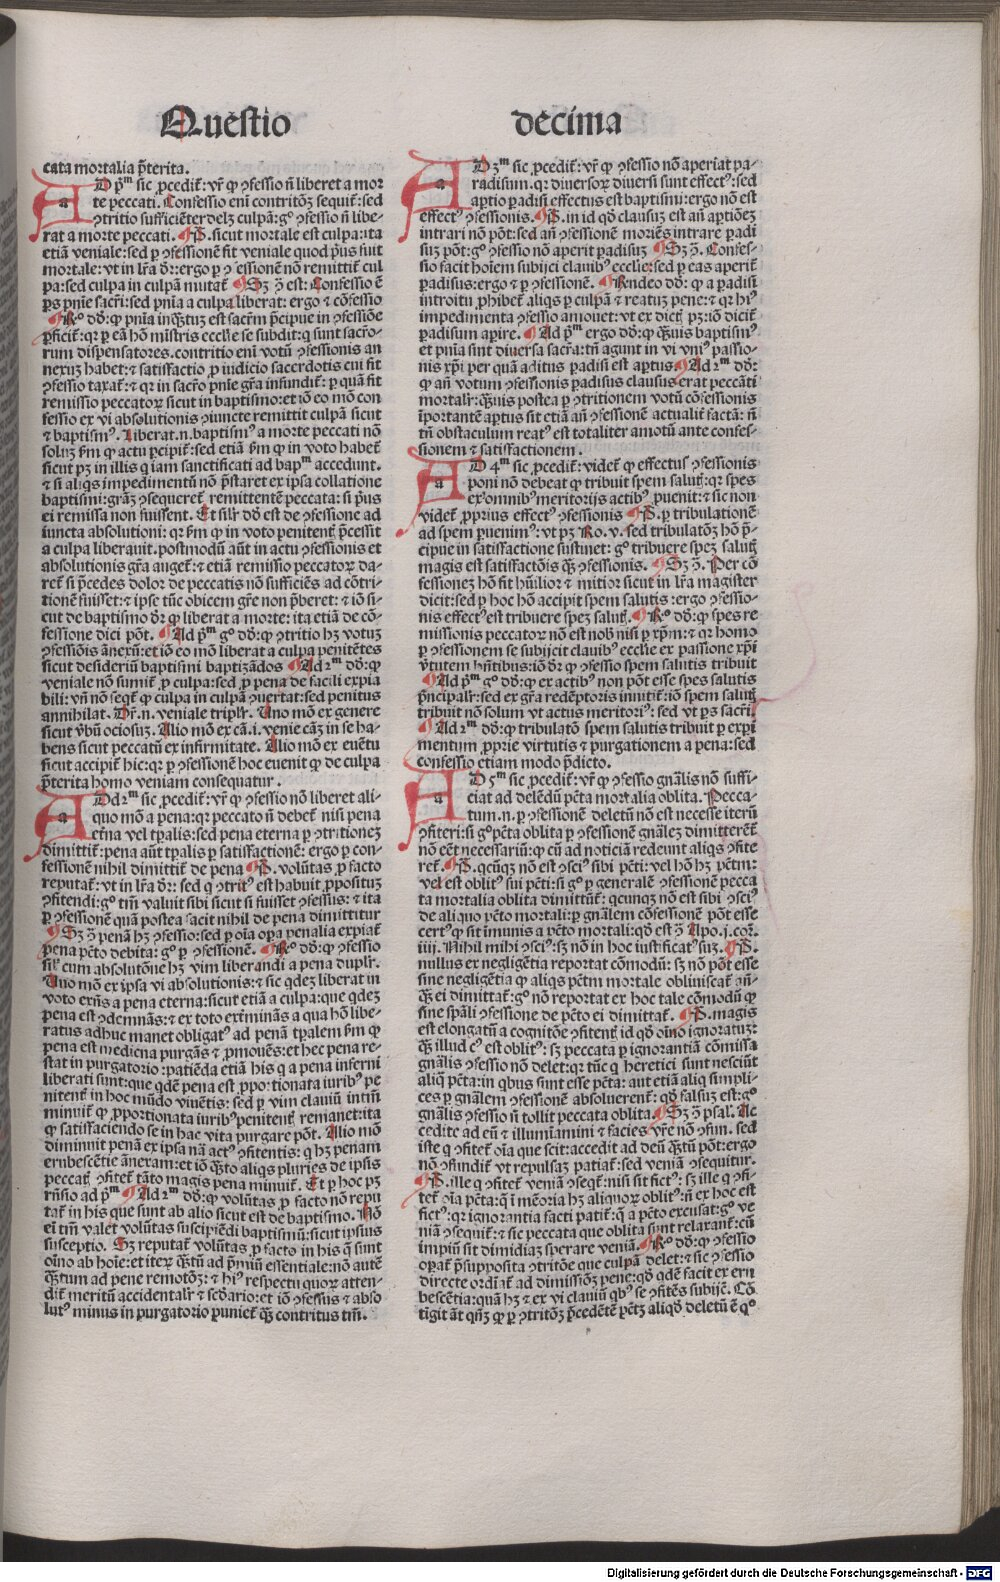 Questio decima
cata mortalia p̄terita.
AD pᵐ sic ꝓcedit᷑: vr̄ ꝙ ꝯfessio n̄ liberet a mor
te peccati. Confessio eni contritōꝫ sequit᷑: sed
ꝯtritio sufficiēter delꝫ culpā: gº ꝯfessio n̄ libe-
rat a morte peccati. ¶P̄. sicut mortale est culpa: ita
etiā veniale: sed ꝑ ꝯfessionē fit veniale quod p̄us fuit
mortale: vt in lr̄a dr̄: ergo ꝑ ꝯfessionē nō remittit᷑ cul
pa: sed culpa in culpā mutat᷑ ¶Sꝫ ꝯ̄ est: Confessio ē
ꝑs pn̄ie sacr̄i: sed pn̄ia a culpa liberat: ergo ⁊ cōfessio
¶Rº dd̄: ꝙ pn̄ia inqꝫtuꝫ est sacr̄m p̄cipue in ꝯfessiōe
ꝑficit᷑: qꝛ ꝑ eā hō mīstris ecclīe se subdit: q sunt sacro-
rum dispensatores. contritio eni votū ꝯfessionis an
nexuꝫ habet: ⁊ satisfactio ꝓ iudicio sacerdotis cui fit
ꝯfessio taxat᷑: ⁊ qꝛ in sacr̄o pn̄ie gr̄a infundit᷑: ꝑ quā fit
remissio peccatoꝝ sicut in baptismo: et iō eo mō con
fessio ex vi absolutionis ꝯiuncte remittit culpā sicut
⁊ baptismꝰ. Liberat .n. baptismꝰ a morte peccati nō
soluꝫ ẜm ꝙ actu ꝑcipit᷑: sed etiā ẜm ꝙ in voto habet᷑
sicut pꝫ in illis q iam sanctificati ad bapᵐ accedunt.
⁊ si aliqs impedimentū nō p̄staret ex ipsa collatione
baptismi: gr̄aꝫ ꝯsequeret᷑ remittentē peccata: si p̄us
ei remissa non fuissent. Et silr̄ dd̄ est de ꝯfessione ad
iuncta absolutioni: qꝛ ẜm ꝙ in voto penitentꝭ p̄cessit
a culpa liberauit. postmodū aūt in actu ꝯfessionis et
absolutionis gr̄a auget᷑: ⁊ etiā remissio peccatoꝝ da-
ret᷑ si p̄cedes dolor de peccatis nō sufficiēs ad cōtri-
tionē fuisset: ⁊ ipse tūc obicem gr̄e non p̄beret: ⁊ iō si-
cut de baptismo dr̄ ꝙ liberat a morte: ita etiā de cō-
fessione dici pōt. ¶Ad pᵐ gº dd̄: ꝙ ꝯtritio hꝫ votuꝫ
ꝯfessiōis ānexū: et iō eo mō liberat a culpa penitētes
sicut desideriū baptismi baptizādos ¶Ad 2ᵐ dd̄: ꝙ
veniale nō sumit᷑ ꝓ culpa: sed ꝓ pena de facili expia
bili: vn̄ nō seqt᷑ ꝙ culpa in culpā ꝯuertat᷑: sed penitus
annihilat᷑. Dr̄ .n. veniale triplr̄. Uno mō ex genere
sicut v̄bū ociosuꝫ. Alio mō ex cā .i. venie cāꝫ in se ha-
bens sicut peccatū ex infirmitate. Alio mō ex euētu
sicut accipit᷑ hic: qꝛ ꝑ ꝯfessionē hoc euenit ꝙ de culpa
p̄terita homo veniam consequatur.
AD 2ᵐ sic ꝓcedit᷑: vr̄ ꝙ ꝯfessio nō liberet ali-
quo mō a pena: qꝛ peccato n̄ debet᷑ nisi pena
et̄na vel tꝑalis: sed pena eterna ꝑ ꝯtritionez
dimittit᷑: pena aūt tꝑalis ꝑ satisfactionē: ergo ꝑ con-
fessionē nihil dimittit᷑ de pena ¶P̄. volūtas ꝓ facto
reputat᷑: vt in lr̄a dr̄: sed q ꝯtritꝰ est habuit ꝓpositūꝫ
ꝯfitendi: gº tm̄ valuit sibi sicut si fuisset ꝯfessus: ⁊ ita
ꝑ ꝯfessionē quā postea facit nihil de pena dimittitur
¶Sꝫ ꝯ̄ penā hꝫ ꝯfessio: sed ꝑ oīa oꝑa penalia expiat᷑
pena pctō debita: gº ꝑ ꝯfessionē. ¶Rº dd̄: ꝙ ꝯfessio
sil᷑ cum absolutōne hꝫ vim liberandi a pena duplr̄.
Uno mō ex ipsa vi absolutionis: ⁊ sic qdeꝫ liberat in
voto exn̄s a pena eterna: sicut etiā a culpa: que qdeꝫ
pena est ꝯdemnās: ⁊ ex toto extīminās a qua hō libe-
ratus adhuc manet obligatꝰ ad penā tꝑalem ẜm ꝙ
pena est medicina purgās ⁊ ꝓmouēs: et hec pena re-
stat in purgatorio: patiēda etiā his q a pena inferni
liberati sunt: que qdē pena est ꝓpoꝛtionata iuribꝰ pe
nitentꝭ in hoc mūdo viuētis: sed ꝑ vim clauiū intm̄
minuit᷑ ꝙ ꝓportionata iuribꝰ penitentꝭ remanet: ita
ꝙ satisfaciendo se in hac vita purgare pōt. Alio mō
diminuit penā ex ipsa nā actꝰ ꝯfitentis: q hꝫ penam
erubescētie ānexam: et iō qꝫto aliqs pluries de ipsis
peccatꝭ ꝯfitet᷑ tāto magis pena minuit᷑. Et ꝑ hoc pꝫ
rn̄sio ad pᵐ. ¶Ad 2ᵐ dd̄: ꝙ volūtas ꝓ facto nō repu
tat᷑ in his que sunt ab alio sicut est de baptismo. Nō
ei tm̄ valet volūtas suscipiēdi baptismū: sicut ipsius
susceptio. Sꝫ reputat᷑ volūtas ꝓ facto in his q sunt
oīno ab hoīe: et iteꝝ qꝫtū ad p̄miū essentiale: nō autē
qꝫtum ad pene remotōꝫ: ⁊ hiꝰ respectu quoꝝ atten-
dit᷑ meritū accidentalr̄ ⁊ scd̄ario: et iō ꝯfessus ⁊ abso
lutꝰ minus in purgatorio puniet᷑ qꝫ contritus tm̄.
AD 3ᵐ sic ꝓcedit᷑: vr̄ ꝙ ꝯfessio nō aperiat pa-
radisum. qꝛ diuersoꝝ diuersi sunt effectꝰ: sed
aꝑtio ꝑadisi effectus est baptismi: ergo nō est
effectꝰ ꝯfessionis. ¶P̄. in id qd̄ clausuꝫ est an̄ aꝑtiōeꝫ
intrari nō pōt: sed an̄ ꝯfessionē moriēs intrare ꝑadi
suꝫ pōt: gº ꝯfessio nō aperit ꝑadisuꝫ ¶Sꝫ ꝯ̄. Confes-
sio facit hoīem subijci clauibꝰ ecclie: sed ꝑ eas aperit᷑
ꝑadisus: ergo ⁊ ꝑ ꝯfessionē. ¶Rn̄deo dd̄: ꝙ a ꝑadisi
introitu ꝓhibet᷑ aliqs ꝑ culpā ⁊ reatuꝫ pene: ⁊ qꝛ hiꝰ
impedimenta ꝯfessio amouet: vt ex dictꝭ pꝫ: iō dicit᷑
ꝑadisum aꝑire. ¶Ad pᵐ ergo dd̄: ꝙ qꝫuis baptismꝰ
et pn̄ia sint diuersa sacr̄a: tn̄ agunt in vi vniꝰ passio-
nis xp̄i per quā aditus ꝑadisi est aꝑtus ¶Ad 2ᵐ dd̄:
ꝙ an̄ votum ꝯfessionis ꝑadisus clausus erat peccāti
mortalr̄: qꝫuis postea ꝑ ꝯtritionem votū cōfessionis
īportantē aꝑtus sit etiā an̄ ꝯfessionē actualit᷑ factā: n̄
tn̄ obstaculum reatꝰ est totaliter amotū ante confes-
sionem ⁊ satisfactionem.
AD 4ᵐ sic ꝓcedit᷑: videt᷑ ꝙ effectus ꝯfessionis
poni nō debeat ꝙ tribuit spem salutꝭ: qꝛ spes
ex omnibꝰ meritorijs actibꝰ ꝓuenit: ⁊ sic non
videt᷑ ꝓprius effectꝰ ꝯfessionis ¶P̄. ꝑ tribulationē
ad spem ꝑuenimꝰ: vt pꝫ Ro. v. sed tribulatōꝫ hō p̄-
cipue in satisfactione sustinet: gº tribuere speꝫ salutꝭ
magis est satisfactōis qꝫ ꝯfessionis. ¶Sꝫ ꝯ̄. Per cō
fessioneꝫ hō fit hūilior ⁊ mitior sicut in lr̄a magister
dicit: sed ꝑ hoc hō accipit spem salutis: ergo ꝯfessio-
nis effectꝰ est tribuere speꝫ salutꝭ. ¶Rº dd̄: ꝙ spes re
missionis peccatoꝝ nō est nobꝭ nisi ꝑ xp̄m: ⁊ qꝛ homo
ꝑ ꝯfessionem se subijcit clauibꝰ ecclie ex passione xp̄i
v̄tutem hn̄tibus: iō dr̄ ꝙ ꝯfessio spem salutis tribuit
¶Ad pᵐ gº dd̄: ꝙ ex actibꝰ non pōt esse spes salutis
p̄ncipalr̄: sed ex gr̄a redēptoris innitit᷑: iō spem salutꝭ
tribuit nō solum vt actus meritoriꝰ: sed vt ꝑs sacr̄i.
¶Ad 2ᵐ dd̄: ꝙ tribulatō spem salutis tribuit ꝑ experi
mentum ꝓprie virtutis ⁊ purgationem a pena: sed
confessio etiam modo p̄dicto.
AD 5ᵐ sic ꝓcedit᷑: vr̄ ꝙ ꝯfessio gn̄alis nō suffi-
ciat ad delēdū pctā mortalia oblita. Pecca-
tum .n. ꝑ ꝯfessionē deletū nō est necesse iterū
ꝯfiteri: si gº pctā oblita ꝑ ꝯfessionē gn̄aleꝫ dimitterēt᷑
nō eēt necessariū: ꝙ cū ad noticiā redeunt aliqs ꝯfite
ret᷑. ¶P̄. qcūqꝫ nō est ꝯsciꝰ sibi pcti: vel hō hꝫ pctm̄:
vel est oblitꝰ sui pcti: si gº ꝑ generalē ꝯfessionē pecca
ta mortalia oblita dimittūt᷑: qcunqꝫ nō est sibi ꝯsciꝰ
de aliquo pctō mortali: ꝑ gn̄alem cōfessionē pōt esse
certꝰ ꝙ sit imunis a pctō mortali: qd̄ est ꝯ̄ Apo. j. cor.
iiij. Nihil mihi ꝯsciꝰ: sꝫ nō in hoc iustificatꝰ suꝫ. ¶P̄.
nullus ex negligētia reportat cōmodū: sꝫ nō pōt esse
sine negligētia ꝙ aliqs pctm̄ mortale obliuiscat᷑ an̄-
qꝫ ei dimittat᷑: gº nō reportat ex hoc tale cōmodū ꝙ
sine spāli ꝯfessione de pctō ei dimittat᷑. ¶P̄. magis
est elongatū a cognitōe ꝯfitentꝭ id qd̄ oīno ignoratuꝝ:
qꝫ illud cꝰ est oblitꝰ: sꝫ peccata ꝑ ignorantiā cōmissa
gn̄alis ꝯfessio nō delet: qꝛ tūc q heretici sunt nesciūt
aliq pctā: in qbus sunt esse pctā: aut etiā aliq simpli-
ces ꝑ gn̄alem ꝯfessionē absoluerent᷑: qd̄ falsuꝫ est: gº
gn̄alis ꝯfessio n̄ tollit peccata oblita. ¶Sꝫ ꝯ̄ psal. Ac
cedite ad eū ⁊ illumīamini ⁊ facies vr̄e nō ꝯfun. sed
iste q ꝯfitet᷑ oīa que scit: accedit ad deū qꝫtūꝫ pōt: ergo
nō ꝯfundit᷑ vt repulsaꝫ patiat᷑: sed veniā ꝯsequitur.
¶P̄. ille q ꝯfitet᷑ veniā ꝯseqt᷑: nisi sit fictꝰ: sꝫ ille q ꝯfi-
tet᷑ oīa pctā: q ī memoīa hꝫ aliquoꝝ oblitꝰ: n̄ ex hoc est
fictꝰ: qꝛ ignorantia facti patit᷑: q a pctō excusat: gº ve
niā ꝯsequit᷑: ⁊ sic peccata que oblita sunt relaxant᷑: cū
impiū sit dimidiaꝫ sperare veniā. ¶Rº dd̄: ꝙ ꝯfessio
oꝑat᷑ p̄supposita ꝯtritōe que culpā delet: ⁊ sic ꝯfessio
directe ordīat᷑ ad dimissōꝫ pene: qd̄ qdē facit ex eru
bescētia: quā hꝫ ⁊ ex vi clauiū qbꝰ se ꝯfitēs subijc̄. Cō
tigit āt qn̄qꝫ ꝙ ꝑ ꝯtritōꝫ p̄cedētē pctꝫ aliqd̄ deletū ē qº
Digitalisierung gefördert durch die Deutsche Forschungsgemeinschaft - DFG